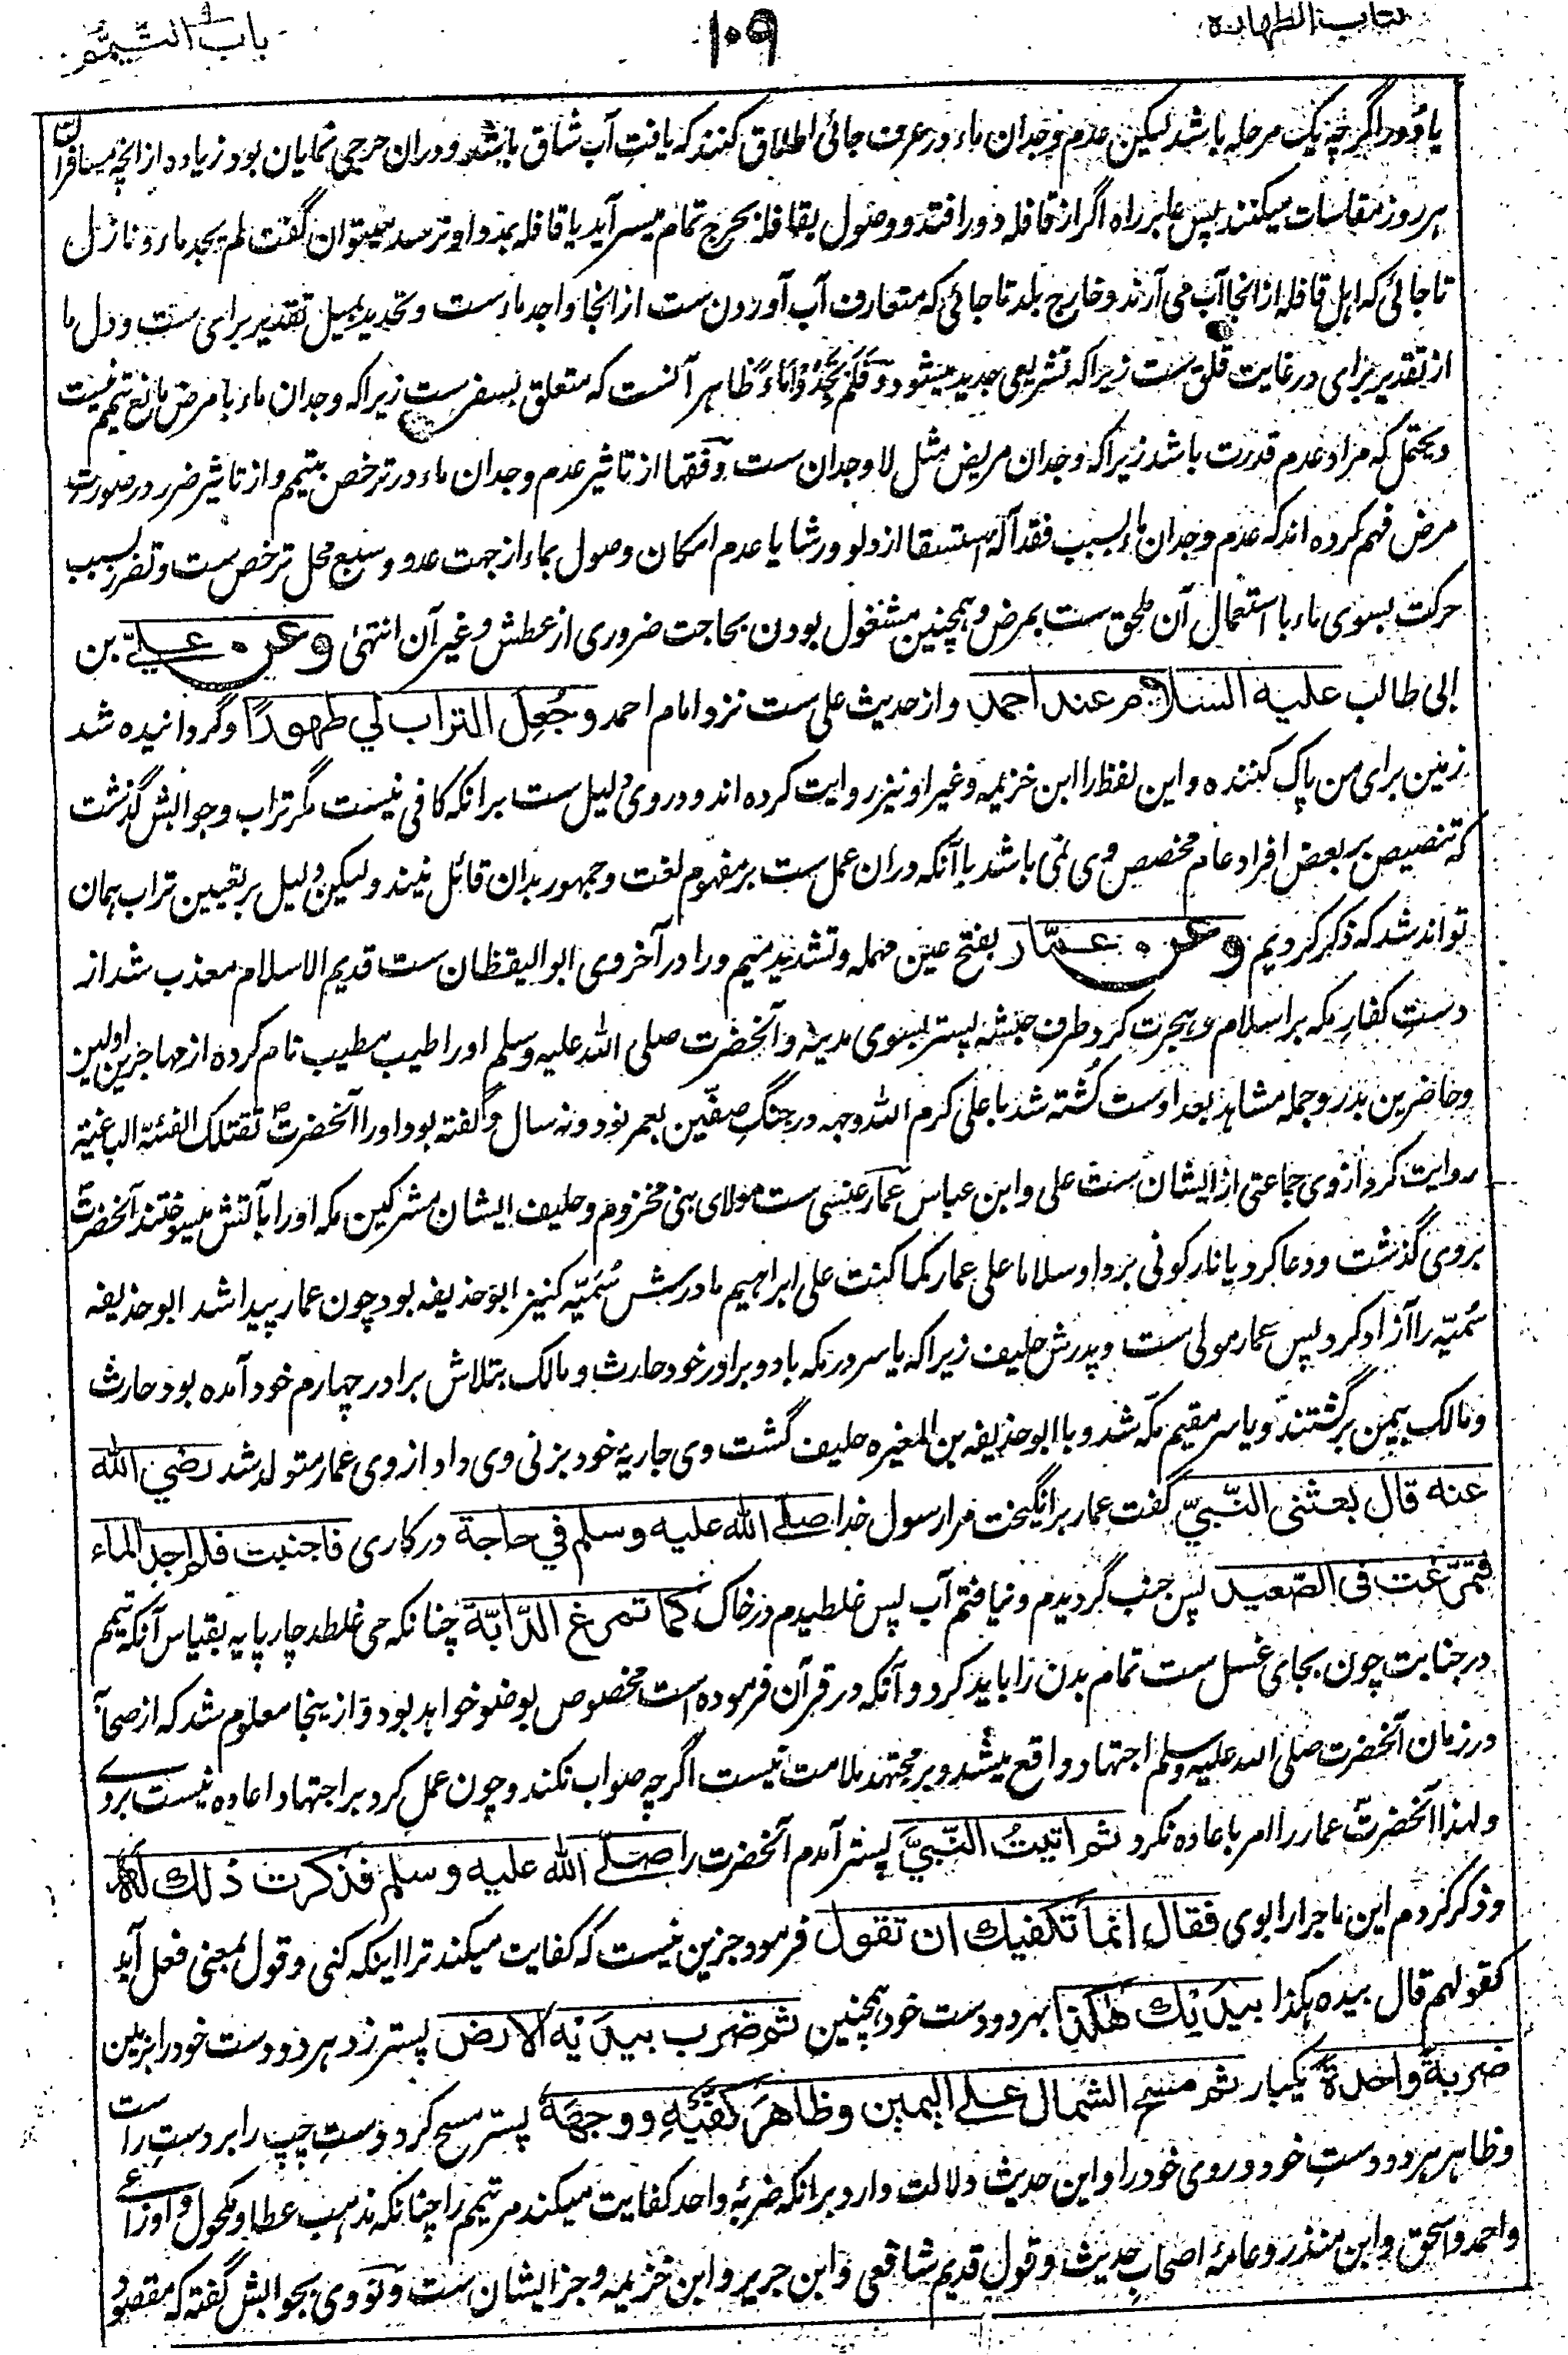 کتاب الطهارة
۱۰۹
باب التیمم
یا دور اگرچه یک مرحله باشد لیکن عدم وجدان ماء در عرف جائی اطلاق کنند که یافت آب شاق باشد و دران حرجی نمایان بود زیاده ازانچه مسافران
هر روز مقاسات میکنند پس عابر راه اگر از قافله دور افتد و وصول بقافله بحرج تمام میسر آید یا قافله بمدد او نرسد میتوان گفت لم یجد ماء و نازل
تا جائی که اهل قافله از انجا آب می آرند و خارج بلد تا جائی که متعارف آب آوردن ست از انجا واجد ماء ست و تحدید بمیل تقدیر برای ست و دل ما
از تقدیر برای در غایت قلق ست زیرا که تشریعی جدید میشود و فَلَمْ تَجِدُوْا مَاءً ظاهر آنست که متعلق بسفر ست زیرا که وجدان ماء با مرض مانع تیمم نیست
و یحتمل که مراد عدم قدرت باشد زیرا که وجدان مریض مثل لا وجدان ست و فقها از تاثیر عدم وجدان ماء در ترخص بتیمم و از تاثیر ضرر در صورت
مرض فهم کرده اند که عدم وجدان ماء بسبب فقد آلهٔ استسقا از دلو و رشا یا عدم امکان وصول بماء از جهت عدو و سبع محل ترخص ست و تضرر بسبب
حرکت بسوی ماء یا استعمال آن ملحق ست بمرض و همچنین مشغول بودن بحاجت ضروری از عطش و غیر آن انتهی وعن علیّ بن
ابی طالب علیه السلام عند احمد و از حدیث علی ست نزد امام احمد وجُعِل التراب لي طهورًا و گردانیده شد
زمین برای من پاک کننده و این لفظ را ابن خزیمه و غیر او نیز روایت کرده اند و در وی دلیل ست برانکه کافی نیست مگر تراب و جوابش گذشت
که تنصیص بر بعض افراد عام مخصص وی نمی باشد با آنکه دران عمل ست بر مفهوم لقب و جمهور بدان قائل نیند و لیکن دلیل بر تعیین تراب همان
تواند شد که ذکر کردیم وعن عمّار بفتح عین مهمله و تشدید میم و را در آخر وی ابو الیقظان ست قدیم الاسلام معذب شد از
دست کفار مکه بر اسلام و هجرت کرد طرف حبشه پستر بسوی مدینه و آنحضرت صلی الله علیه وسلم او را طیب مطیب نام کرده از مهاجرین اولین
و حاضرین بدر و جمله مشاهد بعد اوست کُشته شد با علی کرم الله وجهه در جنگ صفّین بعمر نود و نه سال و گفته بود او را آنحضرتؐ تقتلک الفئة الباغیة
روایت کرد از وی جماعتی از ایشان ست علی و ابن عباس عمار عنسی ست مولای بنی مخزوم و حلیف ایشان مشرکین مکه او را بآتش میسوختند آنحضرتؐ
بروی گذشت و دعا کرد یا نار کونی بردا وسلاما علی عمار کما کنت علی ابراهیم مادرش سُمَیّه کنیز ابو حذیفه بود چون عمار پیدا شد ابو حذیفه
سُمیّه را آزاد کرد پس عمار مولی ست و پدرش حلیف زیرا که یاسر در مکه با دو برادر خود حارث و مالک بتلاش برادر چهارم خود آمده بود حارث
و مالک بیمن برگشتند و یاسر مقیم مکه شد و با ابو حذیفه بن المغیره حلیف گشت وی جاریهٔ خود بزنی وی داد از وی عمار متولد شد رضي الله
عنه قال بعثنی النّبيّ گفت عمار برانگیخت مرا رسول خدا صلے الله علیه وسلم في حاجة در کاری فاجنبت فلم اجد الماء
فتمرّغت فی الصّعید پس جنب گردیدم و نیافتم آب پس غلطیدم در خاک کما تمرغ الدّابّة چنانکه می غلطد چارپایه بقیاس آنکه تیمم
در جنابت چون بجای غسل ست تمام بدن را باید کرد و آنکه در قرآن فرموده است مخصوص بوضو خواهد بود و از ینجا معلوم شد که از صحابه
در زمان آنحضرت صلی الله علیه وسلم اجتهاد واقع میشد و بر مجتهد ملامت نیست اگرچه صواب نکند و چون عمل کرد بر اجتهاد اعاده نیست بروے
و لهذا آنحضرتؐ عمار را امر باعاده نکرد ثم اتیتُ النّبيَّ پستر آمدم آنحضرت را صلے الله علیه وسلم فذکرت ذلك له
و ذکر کردم این ماجرا را بوی فقال انّما تکفیك ان تقول فرمود جزین نیست که کفایت میکند ترا اینکه کنی و قول بمعنی فعل آید
کقولهم قال بیده هکذا بیدَیْك هٰکذا بهر دو دست خود همچنین ثم ضرب بیدَیْه الارض پستر زد هر دو دست خود را بزمین
ضربةً واحدةً یکبار ثم مسح الشمال علے الیمین وظاهرَ کفّیهِ ووجهَهٗ پستر مسح کرد دست چپ را بر دست راست
و ظاهر هر دو دست خود و روی خود را و این حدیث دلالت دارد برانکه ضربهٔ واحد کفایت میکند مر تیمم را چنانکه مذهب عطا و مکحول و اوزاعے
و احمد و اسحق و ابن منذر و عامهٔ اصحاب حدیث و قول قدیم شافعی و ابن جریر و ابن خزیمه و جز ایشان ست و نووی بجوابش گفته که مقصود